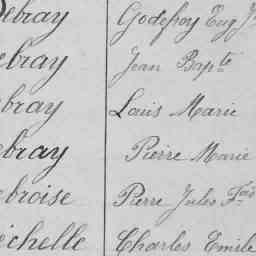 Debray Godefroy Eug J
ebray Jean Bapte
bray Louis Marie
bray Pierre Marie
ebroise Pierre Jules Fois
échelle Charles Emile